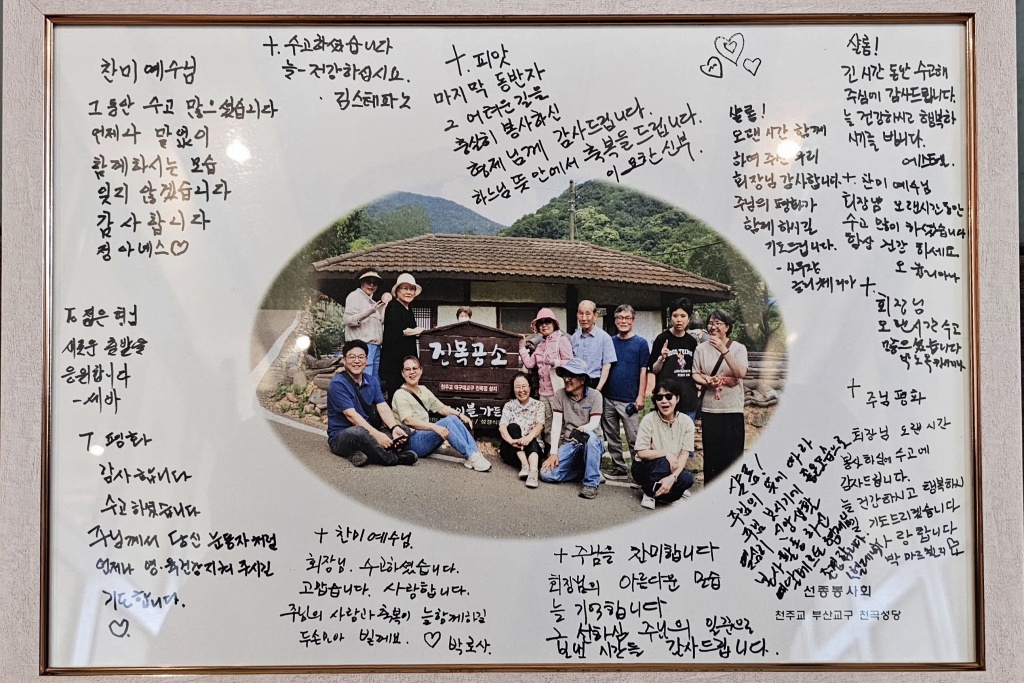 찬미 예수님
그동안 수고 많으셨습니다
언제나 말없이
함께하시는 모습
잊지 않겠습니다
감사합니다
정아녜스♡
+. 수고하셨습니다
늘~건강하십시요.
· 김스테파노
+. 피앗
마지막 동반자
그 어려운 길을
충실히 봉사하신
형제님께 감사드립니다.
하느님 뜻 안에서 축복을 드립니다.
이 요한 신부
샬롬!
오랜 시간 함께
하여 주신 우리
회장님 감사합니다
주님의 평화가
함께 하시길
기도드립니다.
샬롬!
긴 시간 동안 수고해
주심에 감사드립니다.
늘 건강하시고 행복하
시기를 빕니다.
+ 찬미 예수님
회장님 오랜시간동안
수고 많이 하셨습니다
항상 건강 하세요
+.
회장님
오랜시간 수고
많으셨습니다
+ 주님 평화
회장님 오랜 시간
봉사하심에 수고에
감사드립니다.
늘 건강하시고 행복하시
기도드리겠습니다
사랑합니다
To 젊은 형님
새로운 출발을
응원합니다
-세바
T 평화
감사합니다
수고하셨습니다
주님께서 당신 눈동자처럼
언제나 영·육건강지켜 주시길
기도합니다.
♡.
+ 찬미예수님.
회장님. 수고하셨습니다.
고맙습니다. 사랑합니다.
주님의 사랑과 축복이 늘함께하길
두손모아 빌게요. ♡
+ 주님을 찬미합니다
회장님의 아름다운 모습
늘 기억합니다
주님의 일꾼으로
시간들 감사드립니다.
샬롬!
주님의 뜻에 따라
진목공소
천주교 대구대교구 진목정 성지
선종봉사회
천주교 부산교구 천곡성당